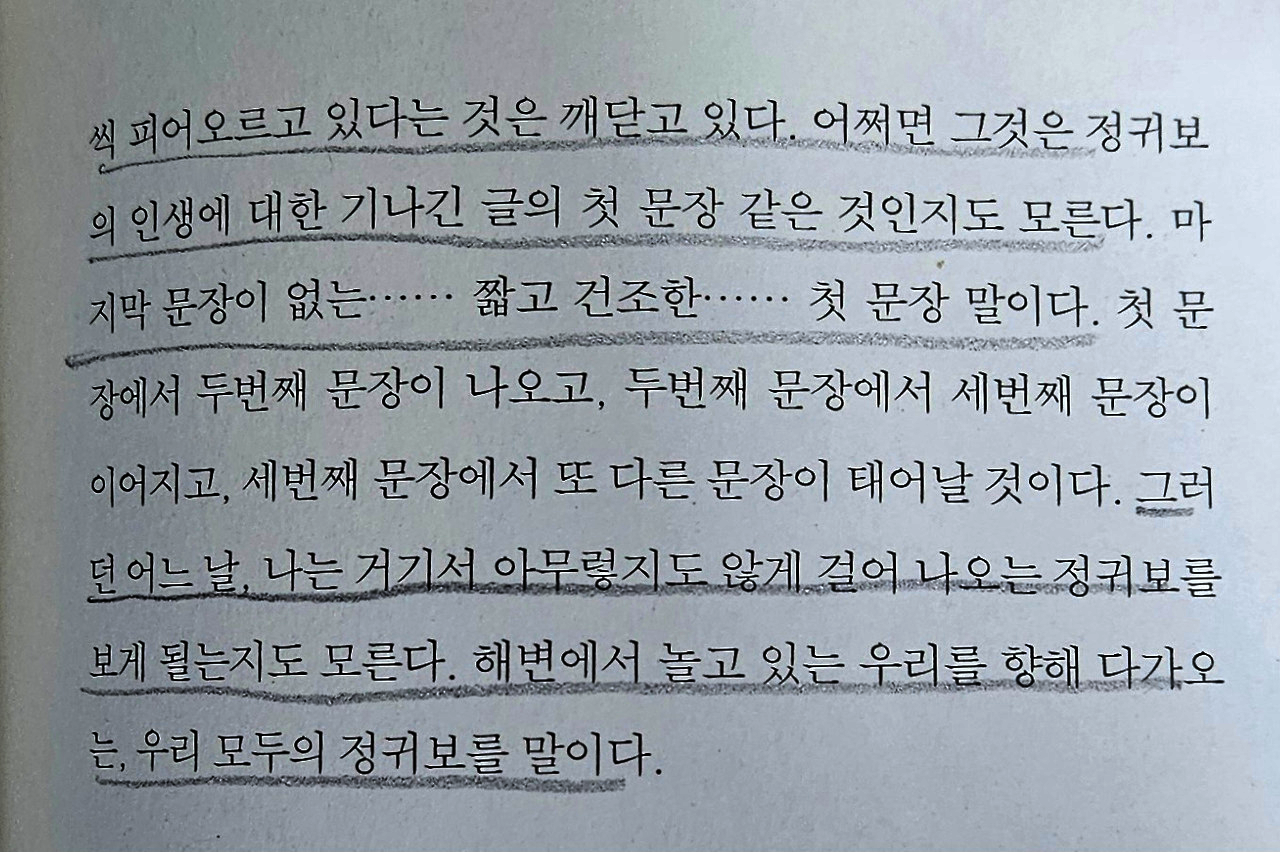 씩 피어오르고 있다는 것은 깨닫고 있다. 어쩌면 그것은 정귀보
의 인생에 대한 기나긴 글의 첫 문장 같은 것인지도 모른다. 마
지막 문장이 없는…… 짧고 건조한…… 첫 문장 말이다. 첫 문
장에서 두번째 문장이 나오고, 두번째 문장에서 세번째 문장이
이어지고, 세번째 문장에서 또 다른 문장이 태어날 것이다. 그러
던 어느 날, 나는 거기서 아무렇지도 않게 걸어 나오는 정귀보를
보게 될는지도 모른다. 해변에서 놀고 있는 우리를 향해 다가오
는, 우리 모두의 정귀보를 말이다.